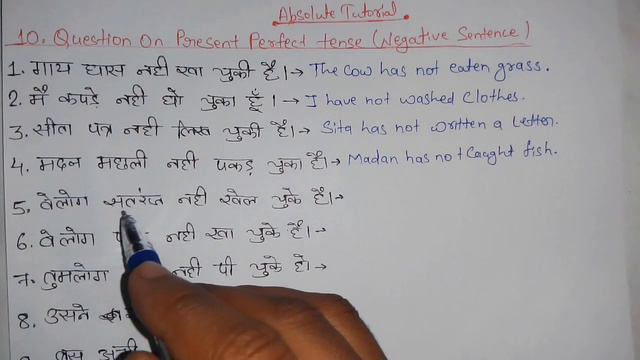 Absolute Tutorial.
10. Question On Present Perfect tense (Negative Sentence)
1. गाय घास नही खा चुकी है।→ The Cow has not eaten grass.
2. मै कपड़े नही धो चुका हूँ।→ I have not washed Clothes.
3. सीता पत्र नही लिख चुकी है।→ Sita has not written a Letter.
4. मदन मछली नही पकड़ चुका है।→ Madan has not Caught fish.
5. वेलोग सतरंज नही खेल चुके हैं।→
6. वेलोग नही खा चुके हैं।→
7. तुमलोग नही पी चुके हो।→
8. उसने